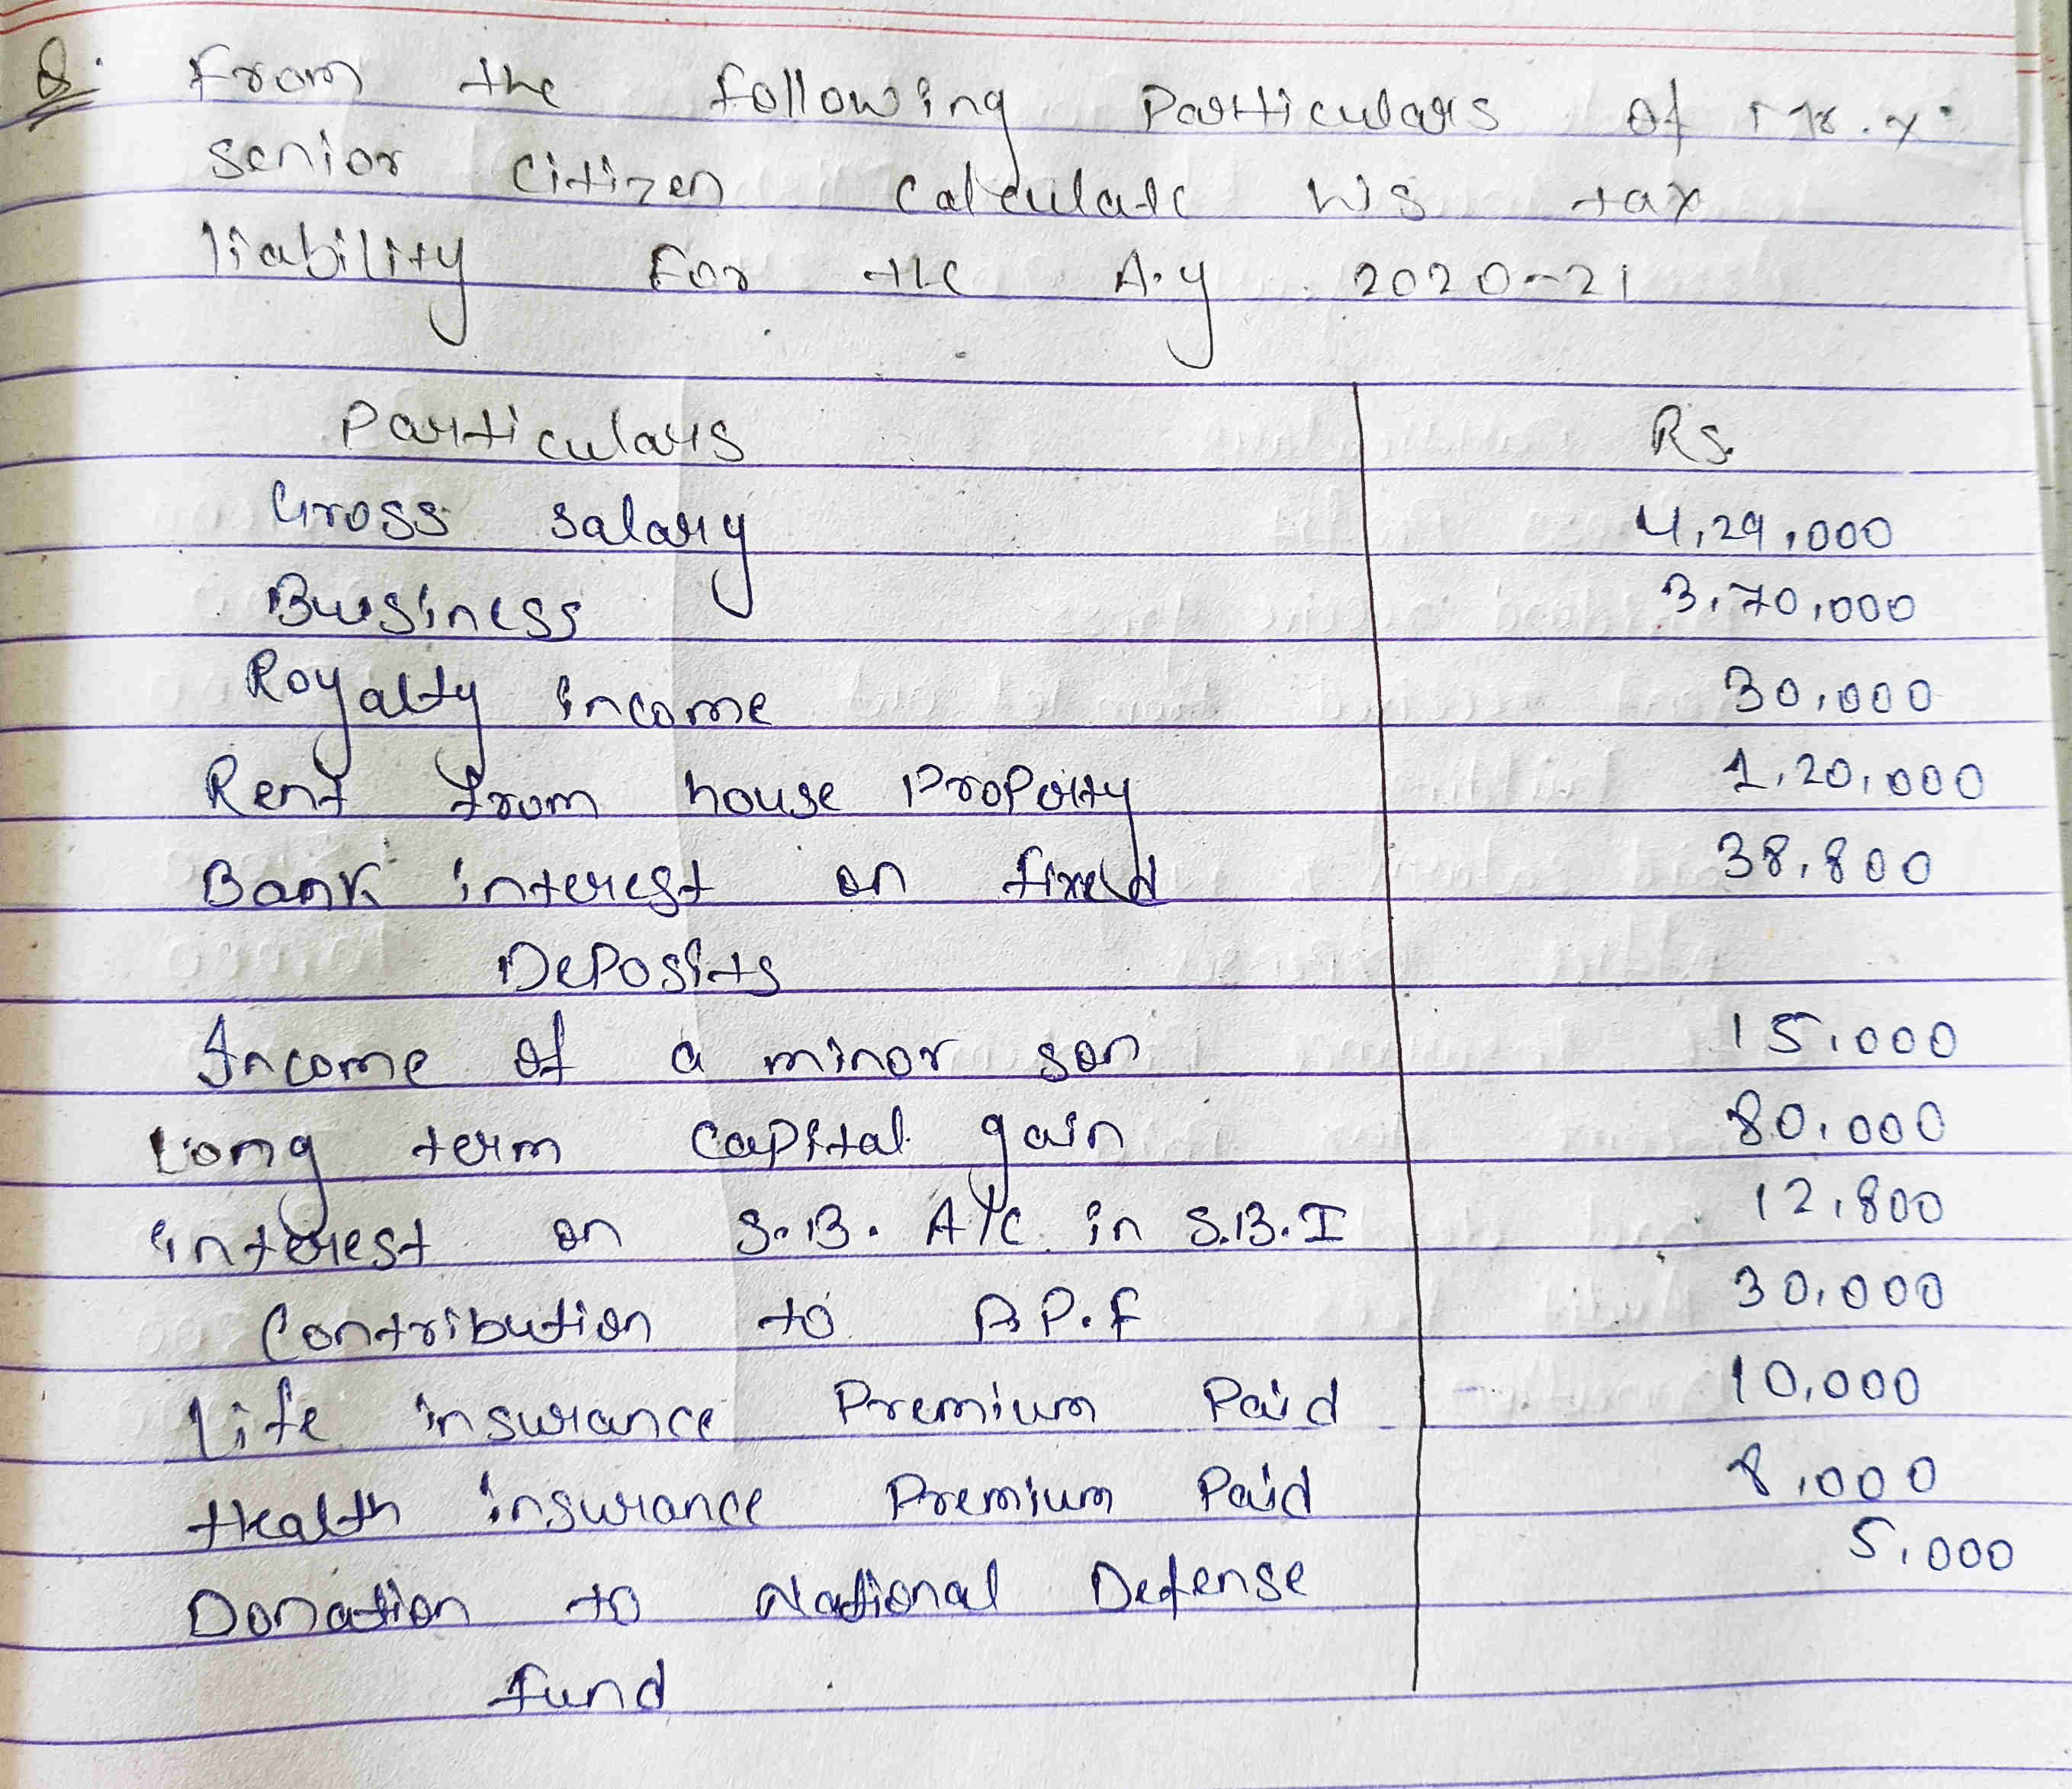 Q. From the following Particulars of Mr. X.
senior Citizen Calculate his tax
liability For the A.y 2020-21
Particulars Rs.
Gross salary 4,29,000
Business 3,70,000
Royalty income 30,000
Rent from house Proporty 1,20,000
Bank interest on fixed 38,800
Deposits
Income of a minor son 15,000
Long term Capital gain 80,000
interest on S.B. A/C in S.B.I 12,800
Contribution to P.P.F 30,000
Life insurance Premium Paid 10,000
Health insurance Premium Paid 8,000
Donation to National Defense 5,000
fund